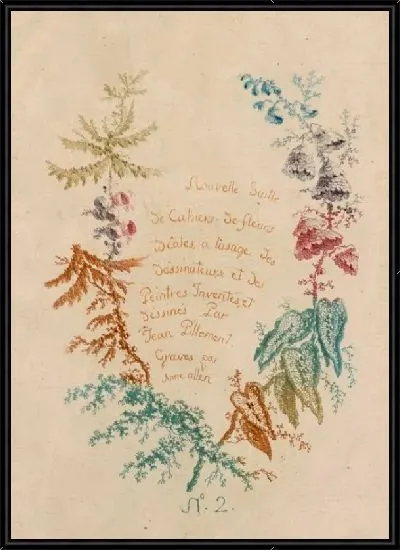 Nouvelle Suitte
De Cahiers De fleurs
Idéales a l'usage des
Dessinateurs et des
Peintres Inventés et
Dessinés Par
Jean Pillement.
Gravés par
Anne allen
N.o 2.